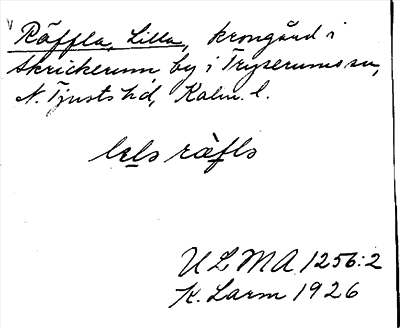 Räffla, Lilla, krongård i
Skrickerum by i Tryserums sn,
N. Tjusts hd, Kalm. l.
lɛls ràfls
ULMA 1256:2
K. Larm 1926